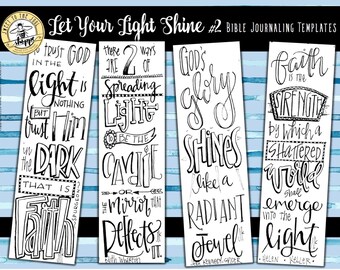 Let Your Light Shine #2 Bible Journaling Templates
Trust God
in the
light is
nothing
but
trust Him
in the
DARK
THAT IS
Faith
there are
2 ways
of
Spreading
Light
be the
Candle
OR
the
Mirror that
Reflects
it
Edith Wharton
God's
glory
SHINES
like a
RADIANT
Jewel
faith
is the
STRENGTH
by which a
SHATTERED
World
shall
emerge
into the
light
Helen Keller